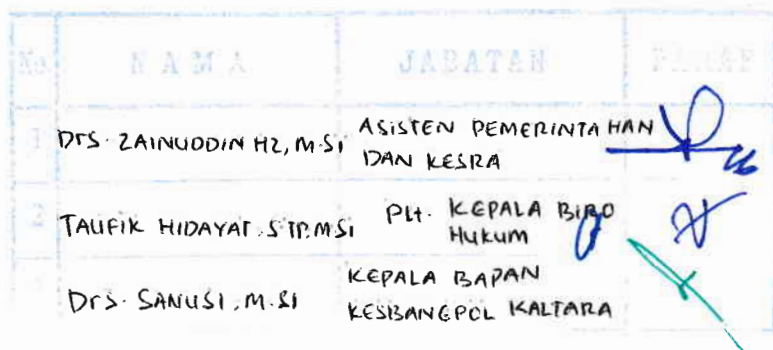 No. NAMA JABATAN PARAF
1 Drs. ZAINUDDIN HZ, M.Si ASISTEN PEMERINTAHAN
DAN KESRA
2 TAUFIK HIDAYAT. S TP. MSi Plt. KEPALA BIRO
HUKUM
KEPALA BADAN
Drs. SANUSI, M.Si
KESBANGPOL KALTARA